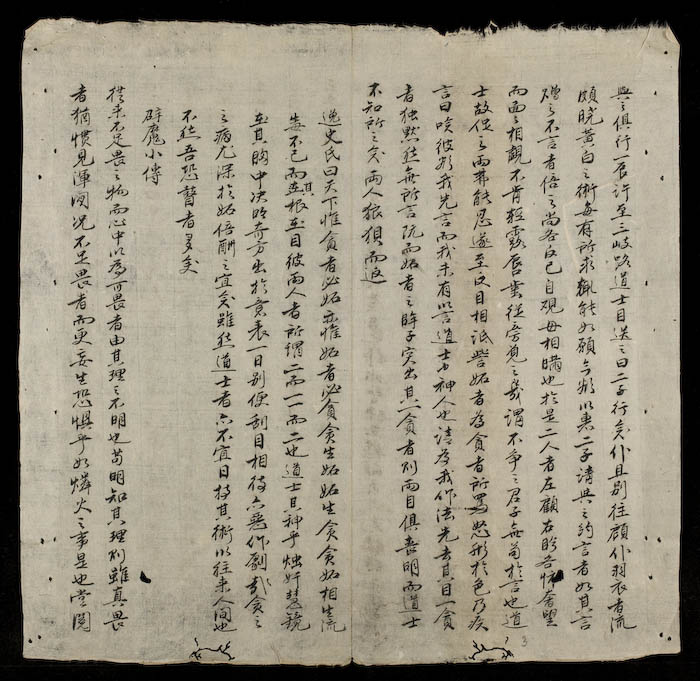 與之俱行一辰許至三岐路道士目送之曰二子行矣仆且別往顧仆羽衣者流
頗曉黃白之術每有所求輒能如願今欲以惠二子請與之約言者如其言
之不言者倍之尚各反己自視毋相瞞也於是二人者左顧右盼各懷奢望
而面之相觀不肯輕露唇齒從旁覓之幾謂不爭之君子無苟於言也道
士故促之兩弗能忍遂至反目相詆訾妬者為貪者所罵怒形於色乃疾
言曰唉彼欲我先言而我未有以言道士神人也請為我作法先去其目一貪
者独默然無所言既而妬者之眸子突出其一貪者則兩目俱喪明而道士
不知所之矣兩人狼狽而返
逸史氏曰天下惟貪者必妬亦惟妬者必貪貪生妬妬生貪貪妬相生流
毒不已而其孽根在目彼兩人者所謂二而一一而二也道士其神乎燭奸慧鏡
在其胸中决眸奇方出於意表一日別便刮目相待亦惡作劇哉貪之
之病尤深於妬倍酬之宜矣雖然道士者亦不宜日持其術以往来人間也
不然吾恐瞽者多矣
辟魔小傳
從来不足畏之物而心中以為可畏者由其理之不明也苟明知其理則雖真畏
者猶慣見渾閑况不足畏者而更妄生恐惧乎如燐火之事是也嘗閱